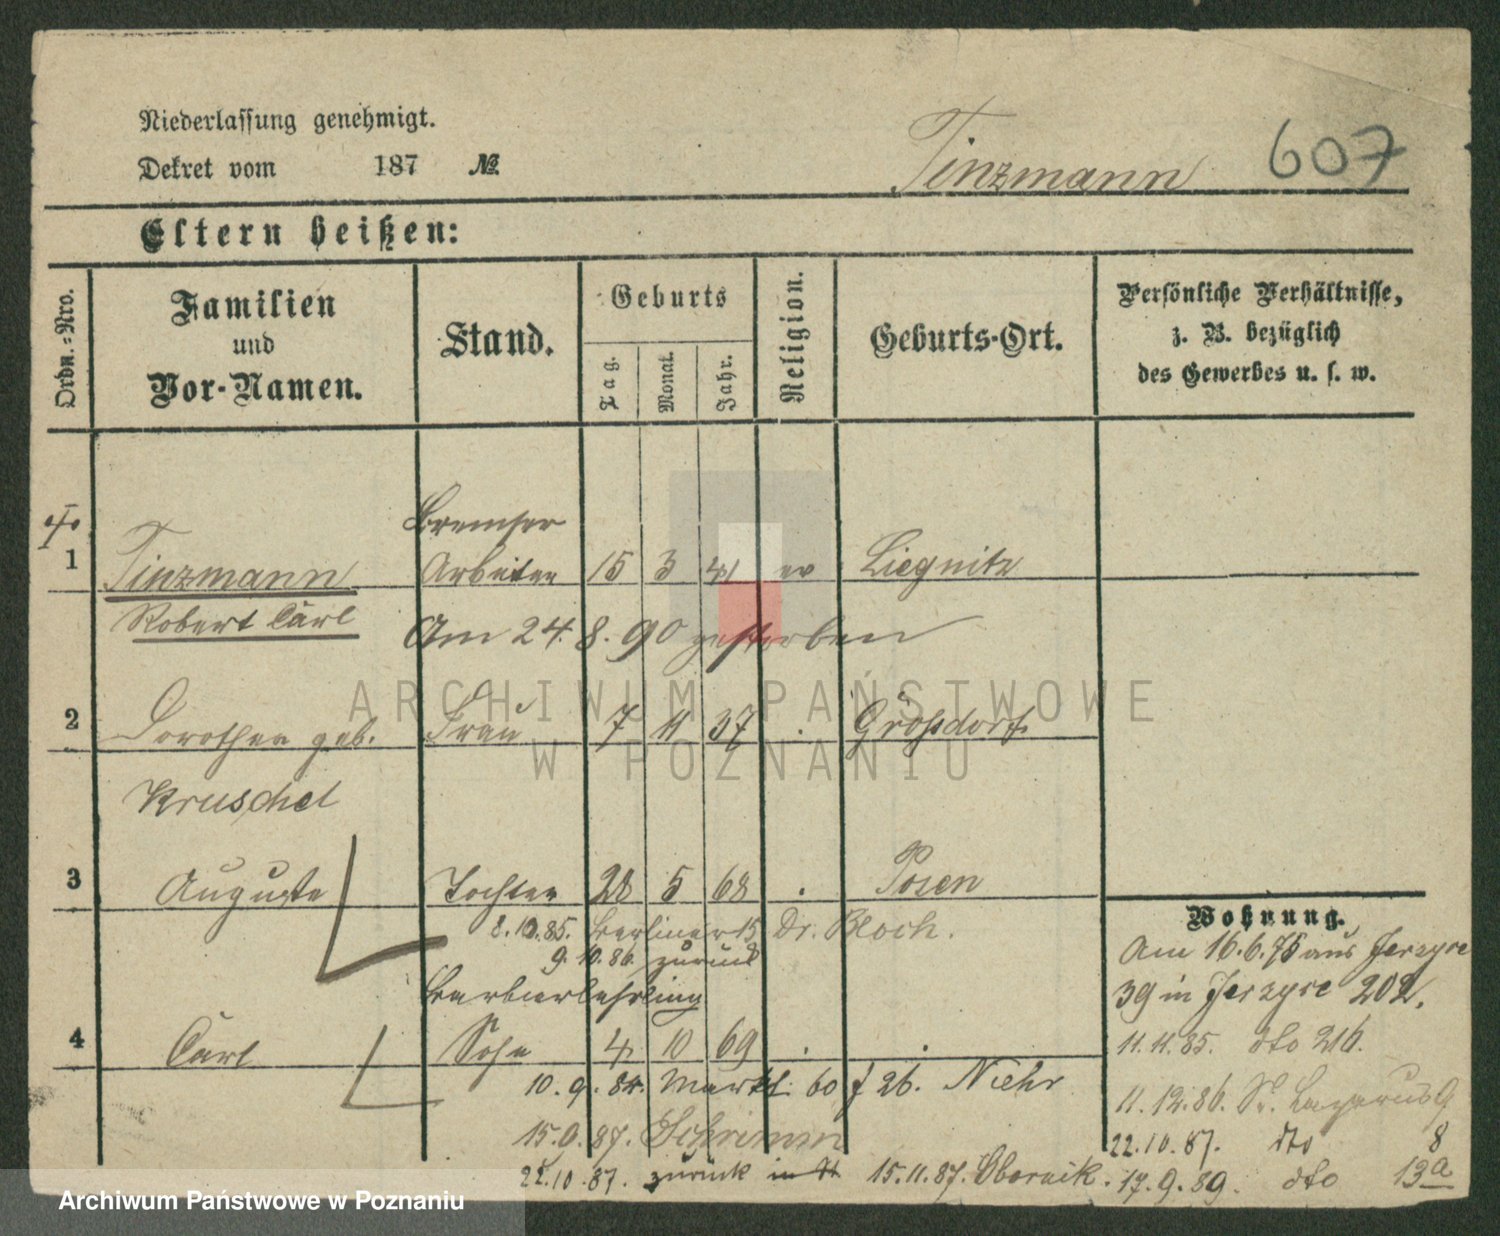 Niederlassung genehmigt.
Dekret vom 187 №
Tinzmann 607
Eltern heißen:
Ordn.=Nro.
Familien
und
Vor-Namen.
Stand.
Geburts
Tag.
Monat.
Jahr.
Religion.
Geburts-Ort.
Persönliche Verhältnisse,
z. B. bezüglich
des Gewerbes u. s. w.
Bremser
1 Tinzmann Arbeiter 15 3 41 ev Liegnitz
Robert Carl Am 24. 8. 90 gestorben
ARCHIWUM PAŃSTWOWE
W POZNANIU
2 Dorothea geb. Frau 7 11 37 . Großdorf
Kruschel
3 Auguste Tochter 28 5 68 . Posen
8.10.85. Berliner 15 Dr. Bloch.
9.10.86. zurück
Barbierlehrling
4 Carl Sohn 4 10 69 . .
10.9.84. Markt. 60 f 26. Niehr
15.9.87. Schrimm
22.10.87. zurück 15.11.87. Obornik.
Wohnung.
Am 16.6.75 aus Jerzyce
39 in Jerzyce 202.
11.11.85. dto 216.
11.12.86. St. Lazarus 9
22.10.87. dto 8
17.9.89. dto 13a
Archiwum Państwowe w Poznaniu